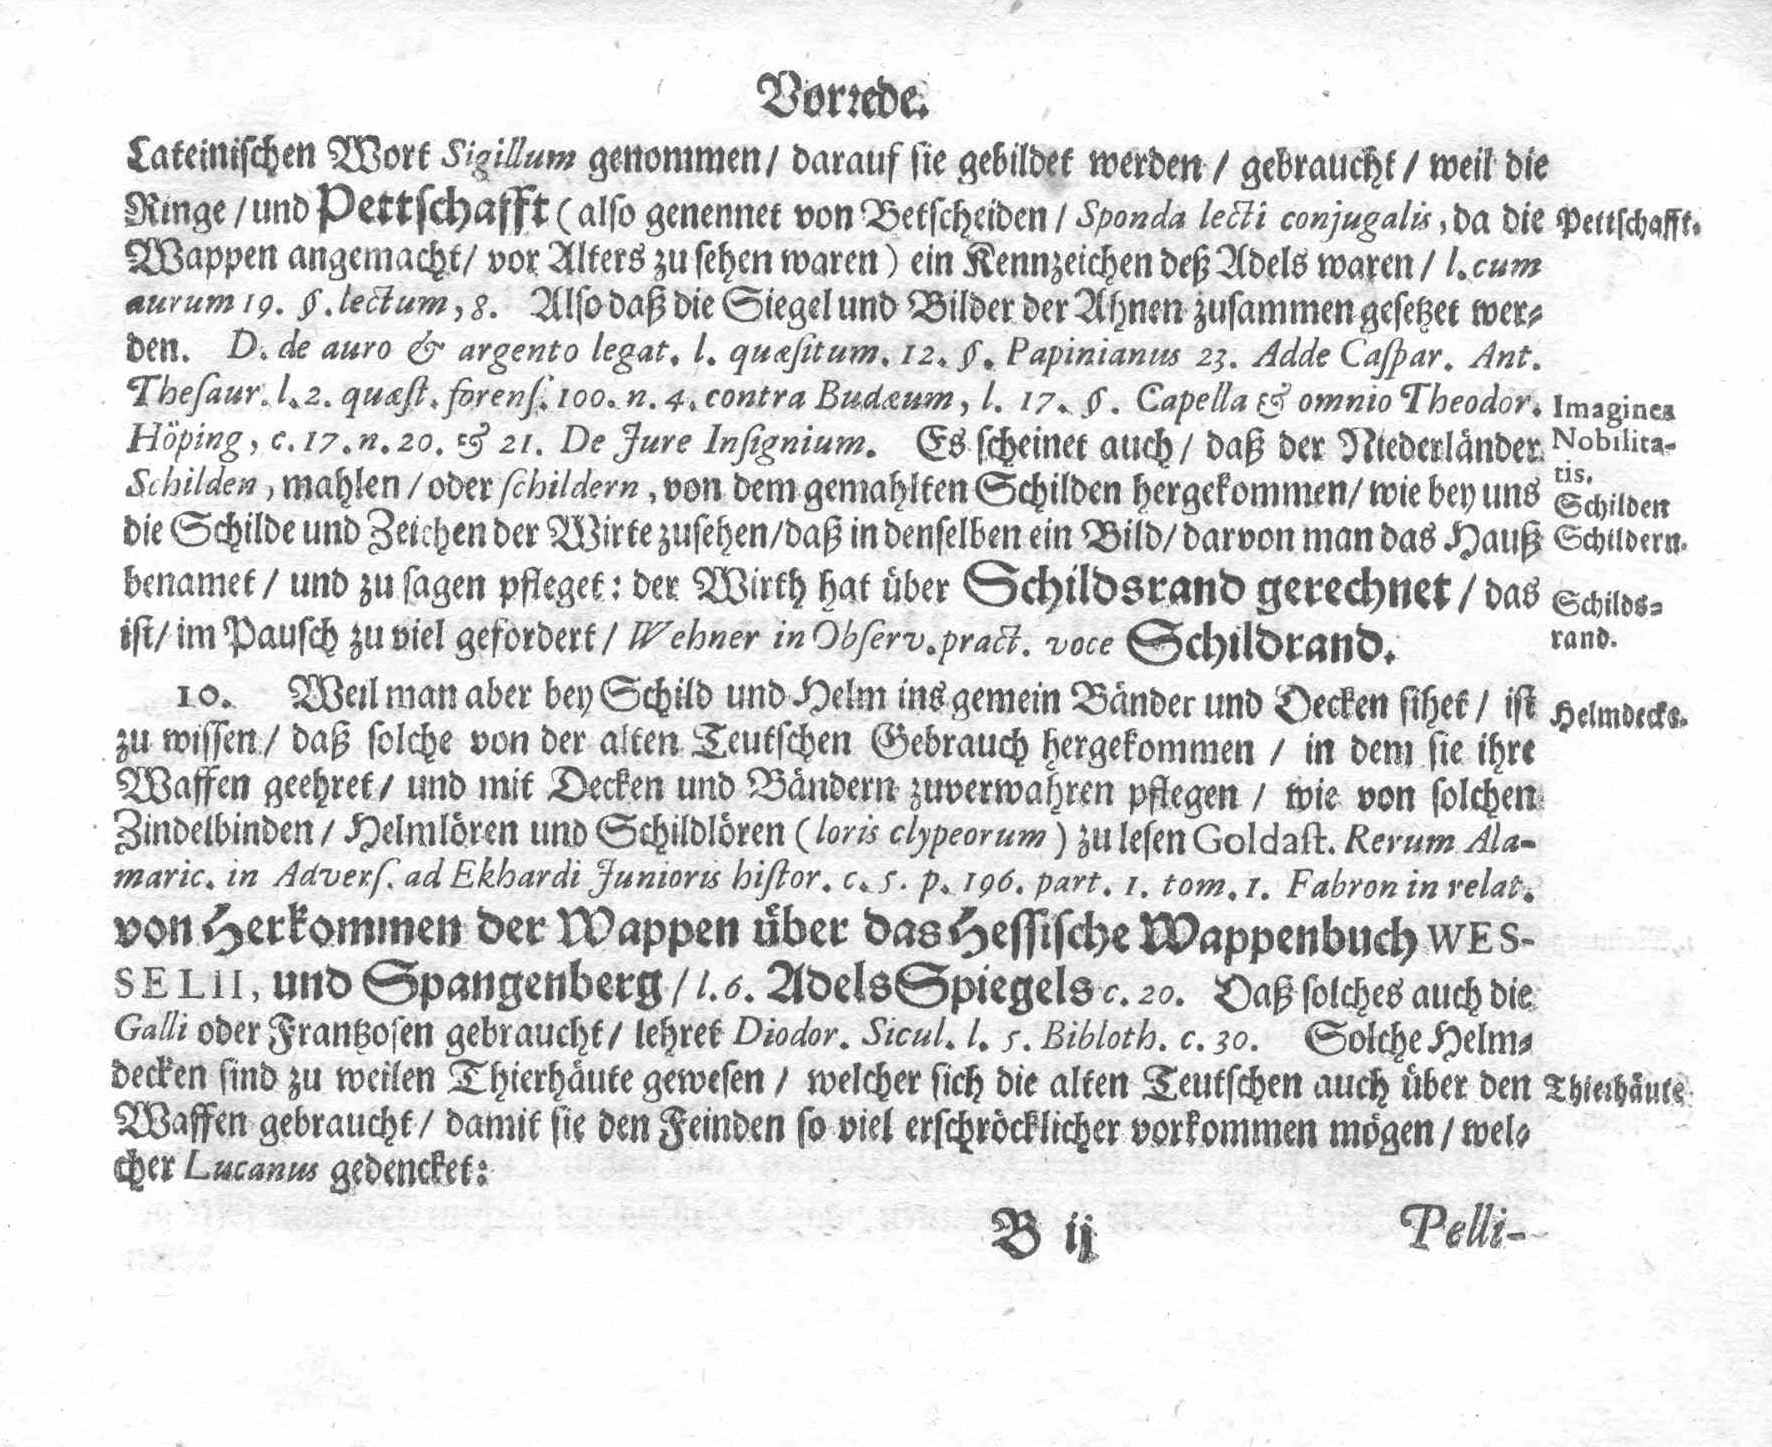 Vorrede.
Lateinischen Wort Sigillum genommen/ darauf sie gebildet werden / gebraucht / weil die
Ringe / und Pettschafft (also genennet von Betscheiden / Sponda lecti conjugalis, da die
Pettschafft.
Wappen angemacht/ vor Alters zu sehen waren) ein Kennzeichen deß Adels waren / l. cum
aurum 19. §. lectum, 8. Also daß die Siegel und Bilder der Ahnen zusammen gesetzet wer-
den. D. de auro & argento legat. l. quæsitum. 12. §. Papinianus 23. Adde Caspar. Ant.
Thesaur. l. 2. quæst. forens. 100. n. 4. contra Budæum, l. 17. §. Capella & omnio Theodor.
Imagines
Höping, c. 17. n. 20. & 21. De Jure Insignium. Es scheinet auch / daß der Niederländer
Nobilita-
tis.
Schilden, mahlen / oder schildern, von dem gemahlten Schilden hergekommen/ wie bey uns
Schilden
die Schilde und Zeichen der Wirte zusehen/daß in denselben ein Bild/ darvon man das Hauß
Schildern.
benamet / und zu sagen pfleget: der Wirth hat über Schildsrand gerechnet / das
Schilds-
ist/ im Pausch zu viel gefordert / Wehner in Observ. pract. voce Schildrand.
rand.
10. Weil man aber bey Schild und Helm ins gemein Bänder und Decken sihet / ist
Helmdecke.
zu wissen / daß solche von der alten Teutschen Gebrauch hergekommen / in dem sie ihre
Waffen geehret / und mit Decken und Bändern zuverwahren pflegen / wie von solchen
Zindelbinden / Helmlören und Schildlören (loris clypeorum) zu lesen Goldast. Rerum Ala-
maric. in Advers. ad Ekhardi Junioris histor. c. 5. p. 196. part. 1. tom. 1. Fabron in relat.
von Herkommen der Wappen über das Hessische Wappenbuch WES-
SELII, und Spangenberg / l. 6. Adels Spiegels c. 20. Daß solches auch die
Galli oder Frantzosen gebraucht / lehret Diodor. Sicul. l. 5. Bibloth. c. 30. Solche Helm-
decken sind zu weilen Thierhäute gewesen / welcher sich die alten Teutschen auch über den
Thierhäute
Waffen gebraucht / damit sie den Feinden so viel erschröcklicher vorkommen mögen / wel-
cher Lucanus gedencket:
B ij
Pelli-